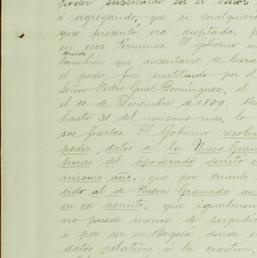 poder sustituido en el señor
i agregando, que si cualquiera
que presente era aceptada,
en esos terminos. El Gobierno
Unido
tambien que ausentarse de Cara
el poder fué sustituido por el
Señor Pedro Gual Dominguez, el
el 10 de Diciembre de 1859.
hasta 31 del mismo mes, lo
sos fuertes. El Gobierno resolvió
poder, datos á la Nueva Gran
tiones del apoderado decretó
mismo año, que por cuanto
cido al de Nueva Granada an
en ese asunto, que igualmente
no puede menos de perjudic
i por ser en Bogotá donde e
datos relativos á la cuestión,